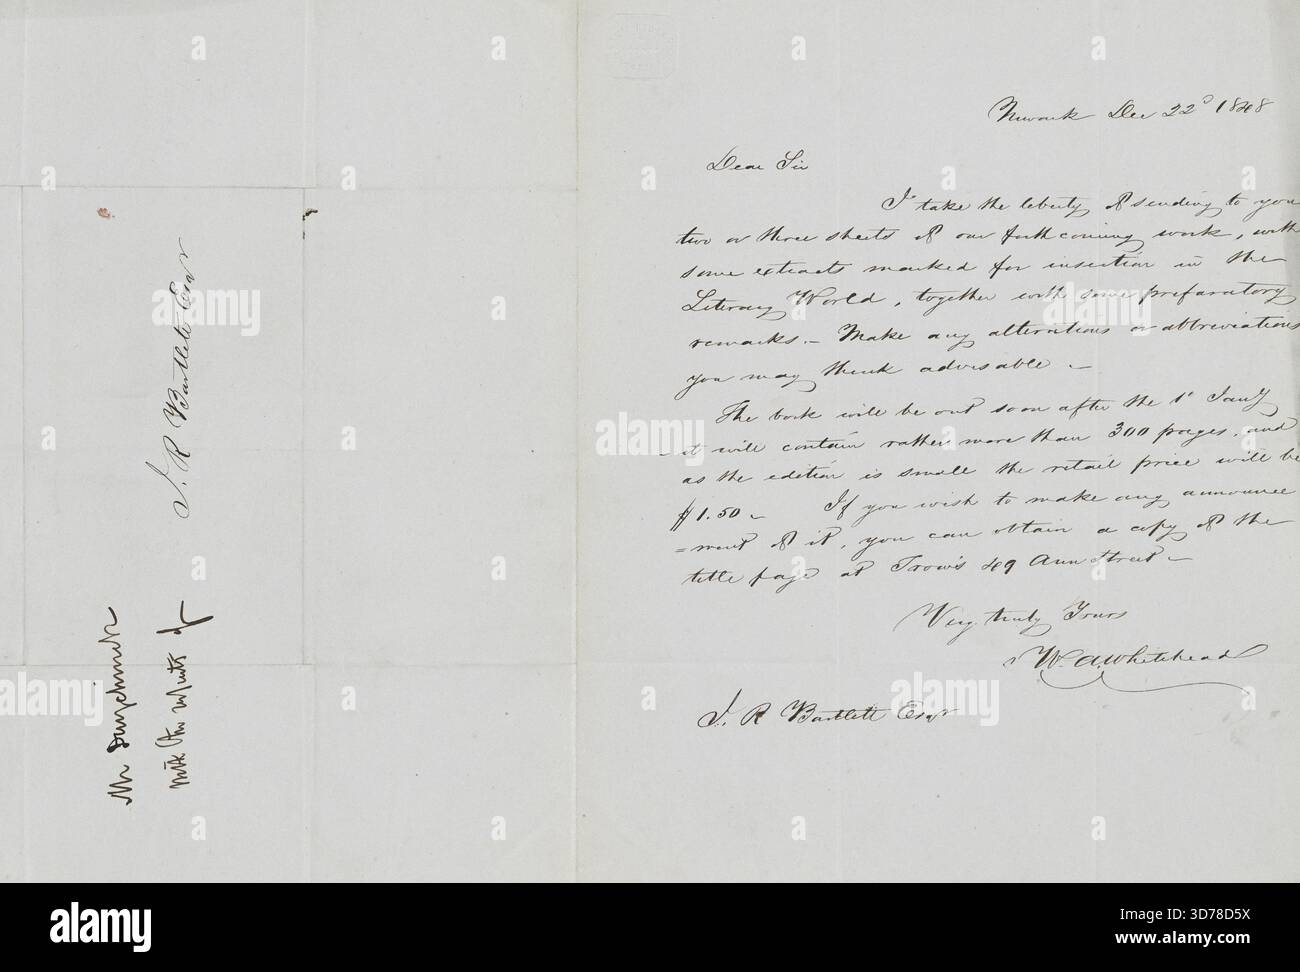 Newark Dec 22d 1848
Dear Sir
I take the liberty of sending to you
two or three sheets of our forthcoming work, with
some extracts marked for insertion in the
Literary World, together with some prefaratory
remarks. - Make any alterations or abbreviations
you may think advisable -
The book will be out soon after the 1st Jany
- it will contain rather more than 300 pages, and
as the edition is small the retail price will be
$1.50 - If you wish to make any announce
=ment of it, you can obtain a copy of the
title page at Trow's 49 Ann Street -
Very truly Yours
W. A. Whitehead
J. R Bartlett Esqr
J. R Bartlett Esqr
Mr Duyckinck
with the
alamy
Image ID: 3D78D5X
www.alamy.com